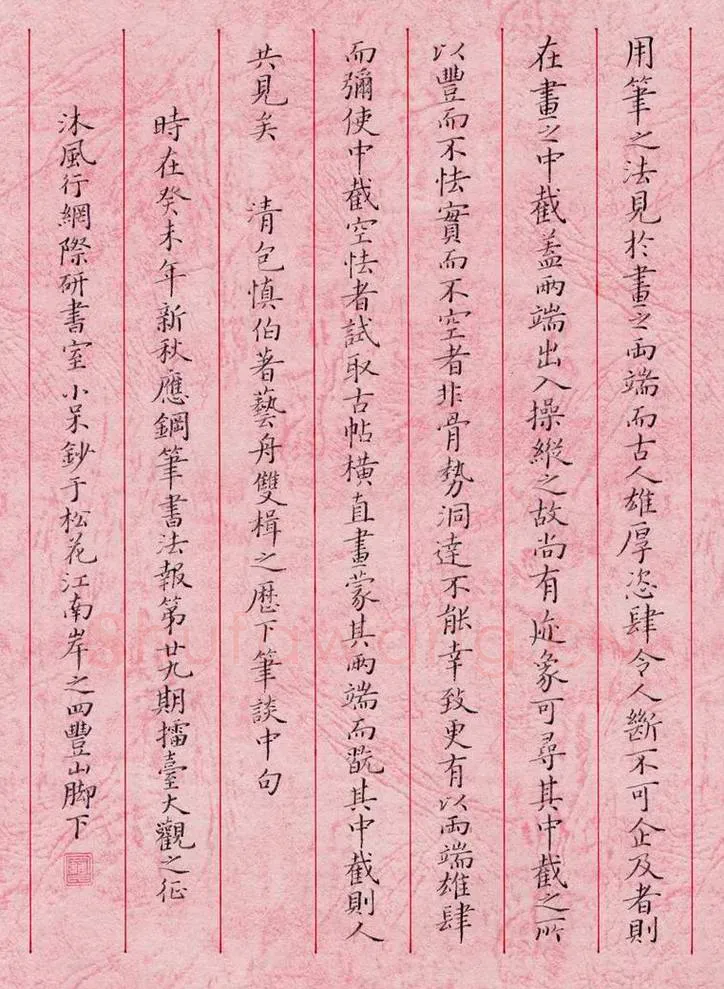 用筆之法見於畫之兩端而古人雄厚恣肆令人斷不可企及者則
在畫之中截蓋兩端出入操縱之故尚有迹象可尋其中截之所
以豐而不怯實而不空者非骨勢洞達不能幸致更有以兩端雄肆
而彌使中截空怯者試取古帖橫直畫蒙其兩端而翫其中截則人
共見矣 清包慎伯著藝舟雙楫之歷下筆談中句
時在癸未年新秋應鋼筆書法報第廿九期擂臺大觀之征
沐風行網際研書室小呆鈔于松花江南岸之四豐山脚下